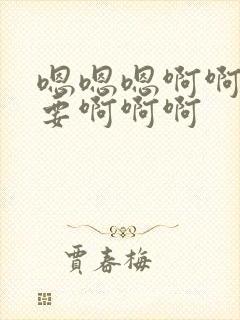 嗯嗯嗯啊啊
要啊啊啊
贾春梅